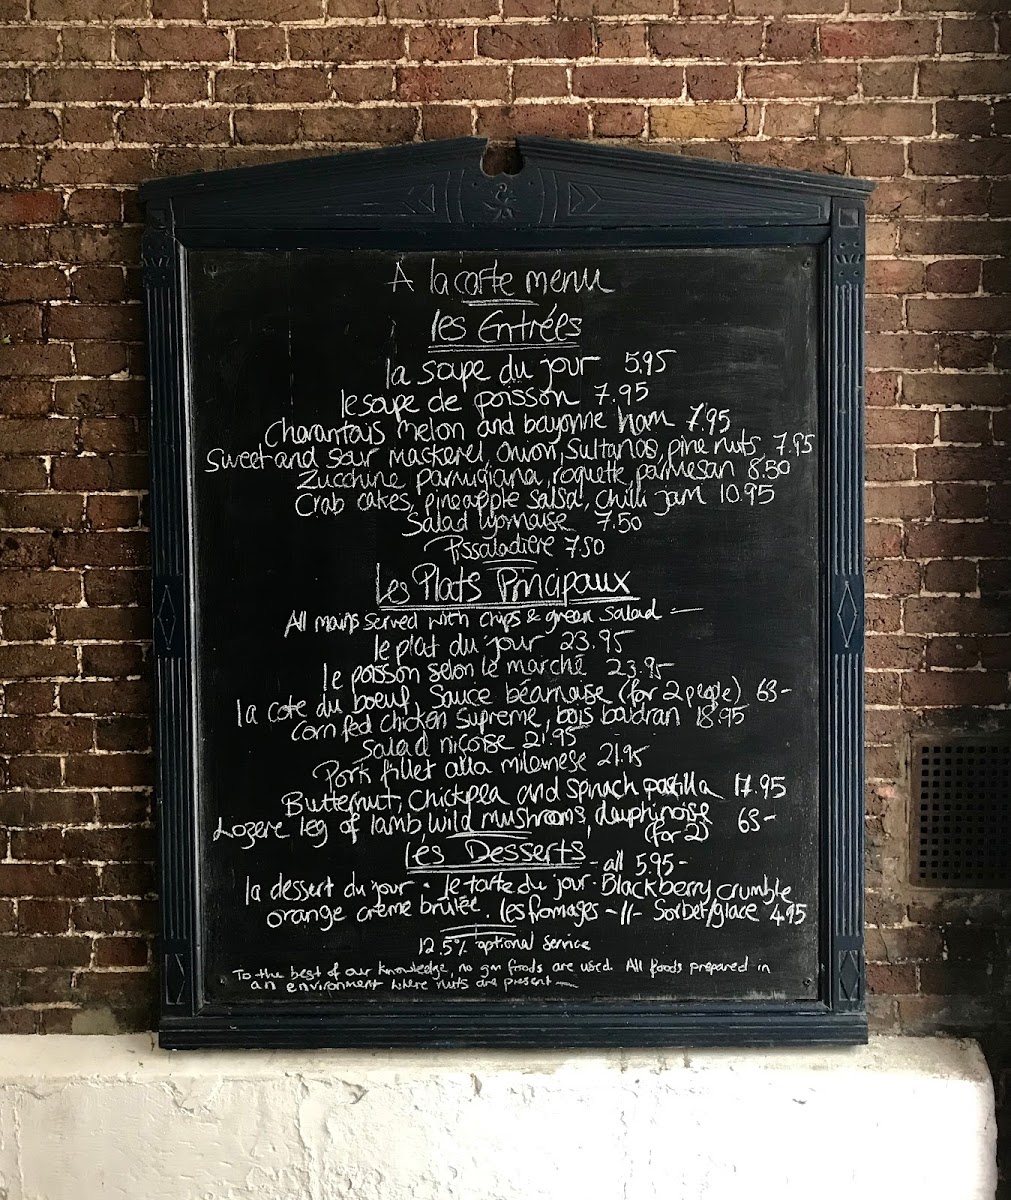 A la carte menu
les Entrées
la soupe du jour 5.95
le soupe de poisson 7.95
Charantais melon and bayonne ham 7.95
Sweet and sour mackerel, onion, sultanas, pine nuts 7.95
Zucchine parmigiana, roquette, parmesan 8.50
Crab cakes, pineapple salsa, chilli jam 10.95
Salad lyonnaise 7.50
Pissaladière 7.50
Les Plats Principaux
All mains served with chips & green salad -
le plat du jour 23.95
le poisson selon le marché 23.95
la cote du boeuf, Sauce béarnaise (for 2 people) 63-
Corn fed chicken supreme, bois boudran 18.95
Salad niçoise 21.95
Pork fillet alla milanese 21.95
Butternut, Chickpea and spinach pastilla 17.95
Lozere leg of lamb, wild mushrooms, dauphinoise 63-
(for 2)
Les Desserts - all 5.95-
la dessert du jour · le tarte du jour · Blackberry crumble
orange crème brûlée . les fromages -11- Sorbet/glace 4.95
12.5% optional service
To the best of our knowledge, no gm foods are used. All foods prepared in
an environment where nuts are present -